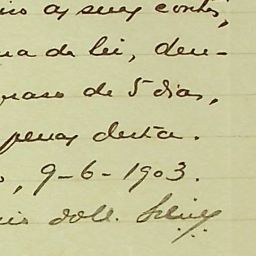 as suas contas,
na da lei, den-
praso de 5 dias,
penas desta.
, 9-6-1903.